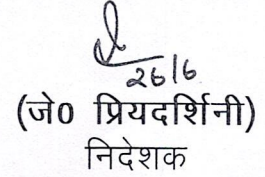 26/6
(जे0 प्रियदर्शिनी)
निदेशक